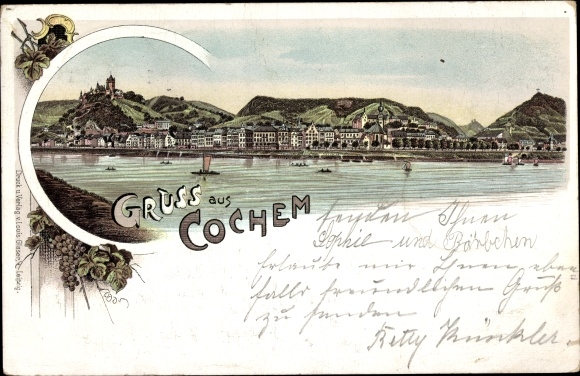 GRUSS aus
COCHEM
senden Ihnen
Sophie und Bärbchen
Erlaube mir Ihnen eben=
falls freundlichen Gruß
zu senden
Ketty Künckler.
Druck u. Verlag v. Louis Glaser, Leipzig.